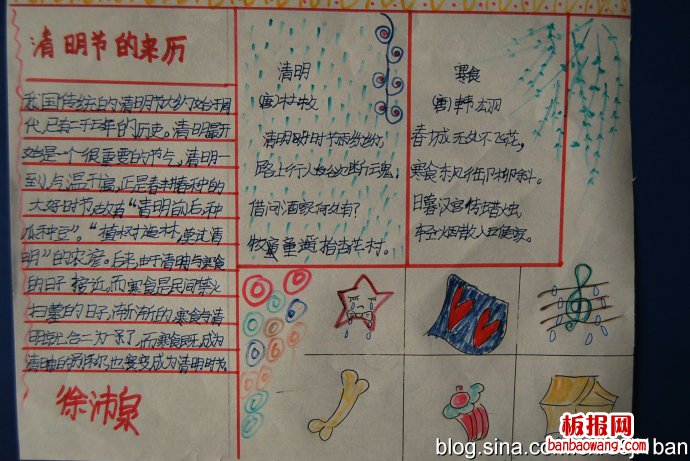 清明节的来历
我国传统的清明节大约始于周
代,已有二千五百年的历史。清明最开
始是一个很重要的节气,清明一
到,气温升高,正是春耕春种的
大好时节,故有“清明前后,种
瓜种豆”。“植树造林,莫过清
明”的农谚。后来由于清明与寒食
的日子接近,而寒食是民间禁火
扫墓的日子,渐渐的,寒食与清
明就合二为一了,而寒食既成为
清明的别称,也变成为清明时节
徐沛泉
清明
(唐)杜牧
清明时节雨纷纷,
路上行人欲断魂,
借问酒家何处有?
牧童遥指杏花村。
寒食
(唐)韩翃
春城无处不飞花,
寒食东风御柳斜。
日暮汉宫传蜡烛,
轻烟散入五侯家。
板报网
banbaowang.com
blog.sina.com
ban